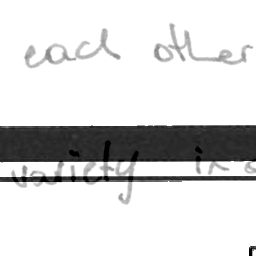 each other
variety in